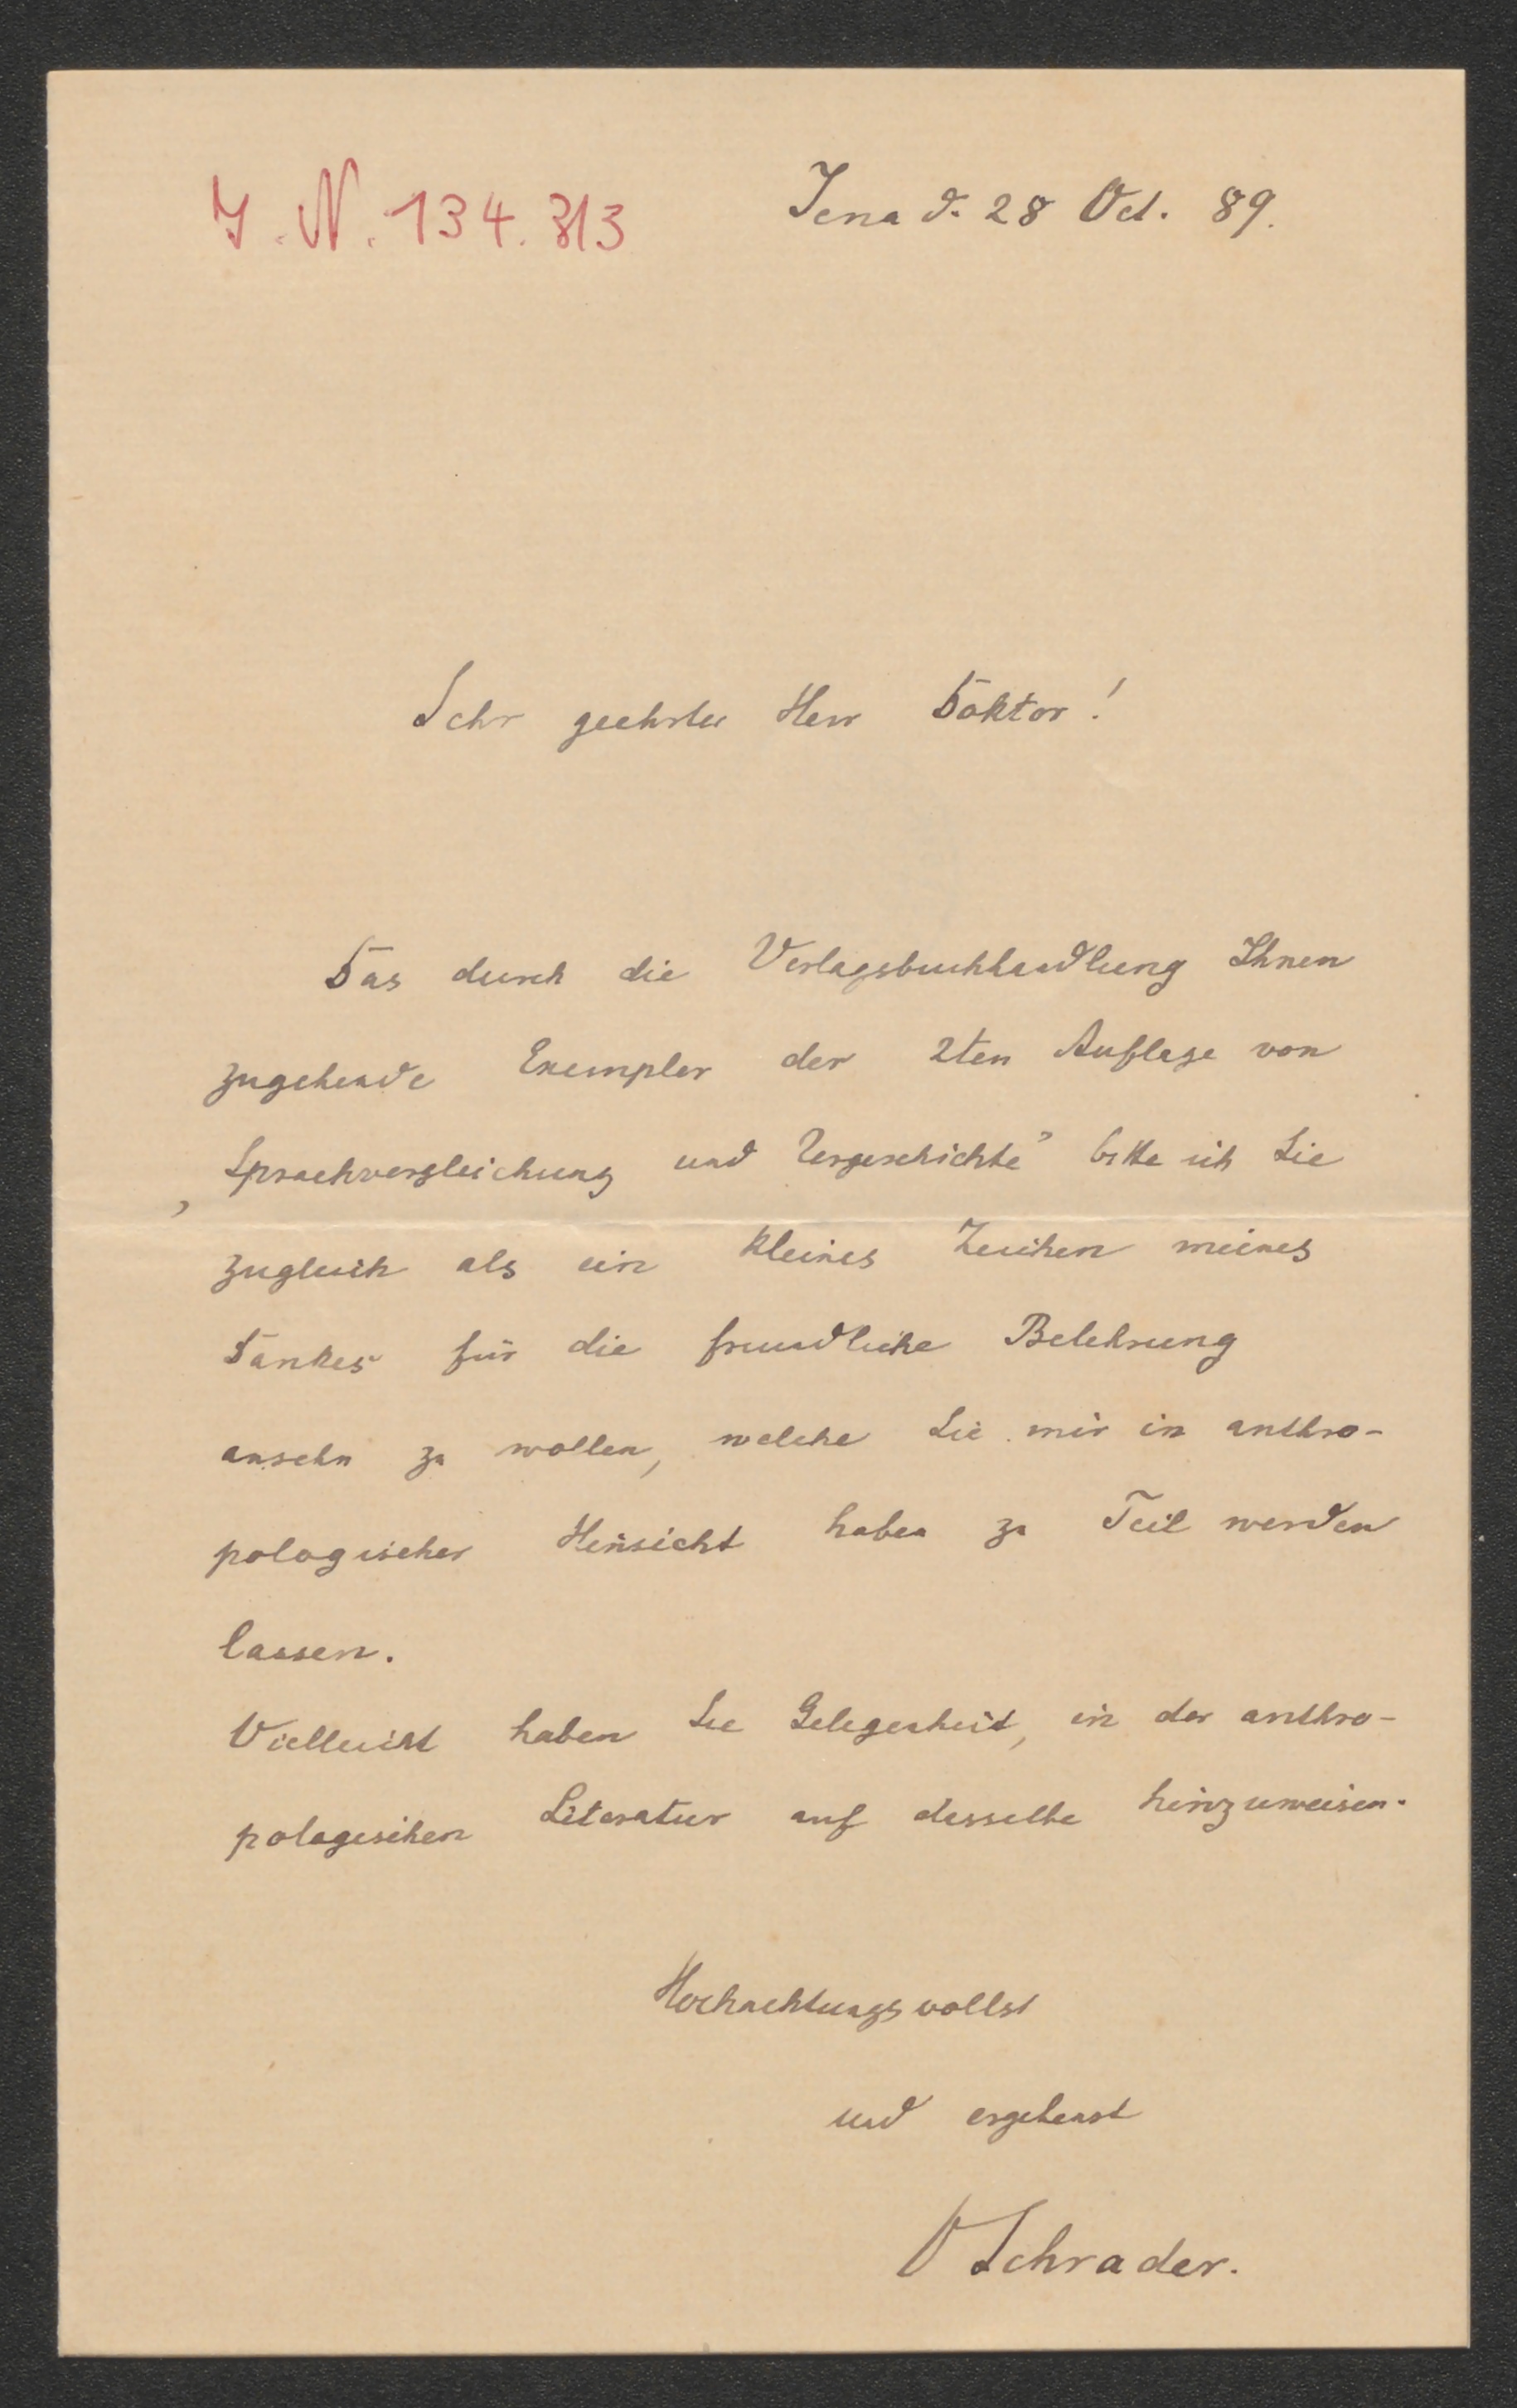 I. N. 134.313
Jena d. 28 Oct. 89.
Sehr geehrter Herr Doktor!
Das durch die Verlagsbuchhandlung Ihnen
zugehende Exemplar der 2ten Auflage von
„Sprachvergleichung und Urgeschichte” bitte ich Sie
zugleich als ein kleines Zeichen meines
Dankes für die freundliche Belehrung
ansehn zu wollen, welche Sie mir in anthro-
pologischer Hinsicht haben zu Teil werden
lassen.
Vielleicht haben Sie Gelegenheit, in der anthro-
pologischen Literatur auf desselbe hinzuweisen.
Hochachtungsvollst
und ergebenst
O Schrader.